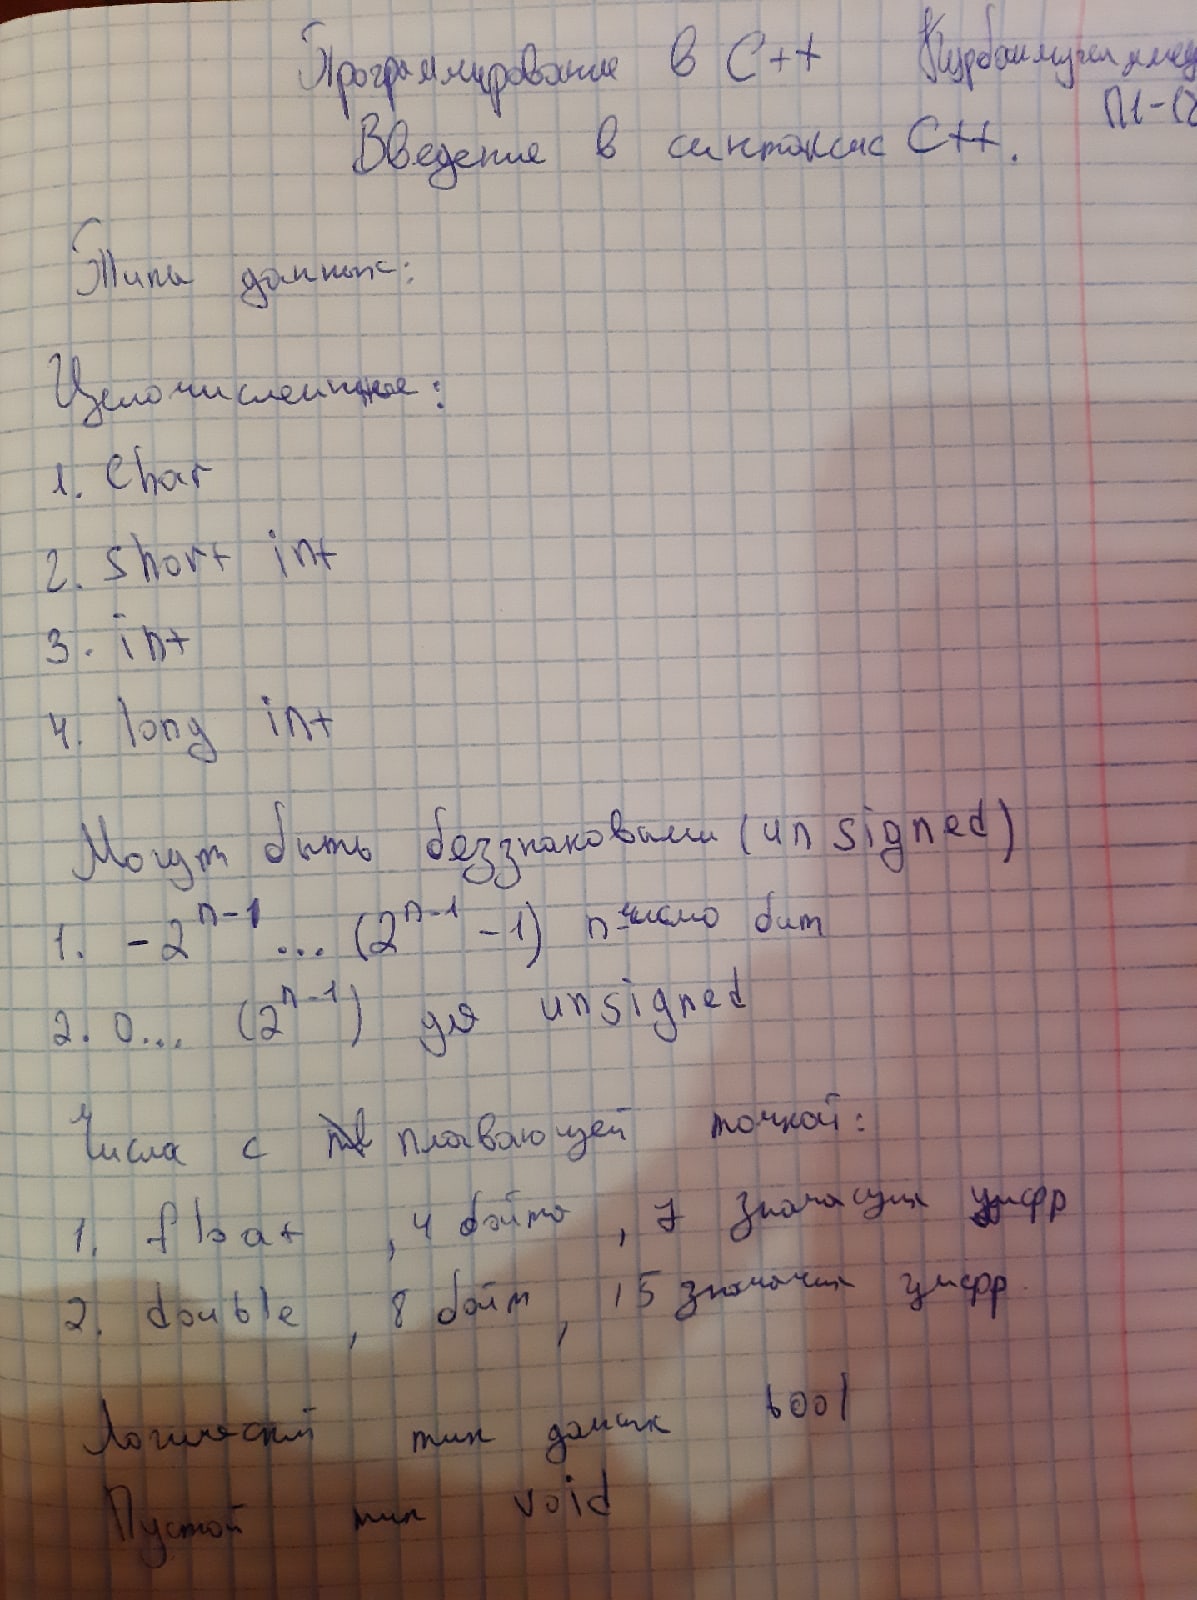 Программирование в C++
П1-18
Введение в синтаксис C++.
Типы данных:
Целочисленные:
1. Char
2. short int
3. int
4. long int
Могут быть беззнаковыми (unsigned)
1. -2^{n-1} ... (2^{n-1} - 1) n-число бит
2. 0... (2^{n-1}) для unsigned
Числа с плавающей точкой:
1. float , 4 байта , 7 значащих цифр
2. double , 8 байт , 15 значащих цифр
Логический тип данных bool
Пустой тип void